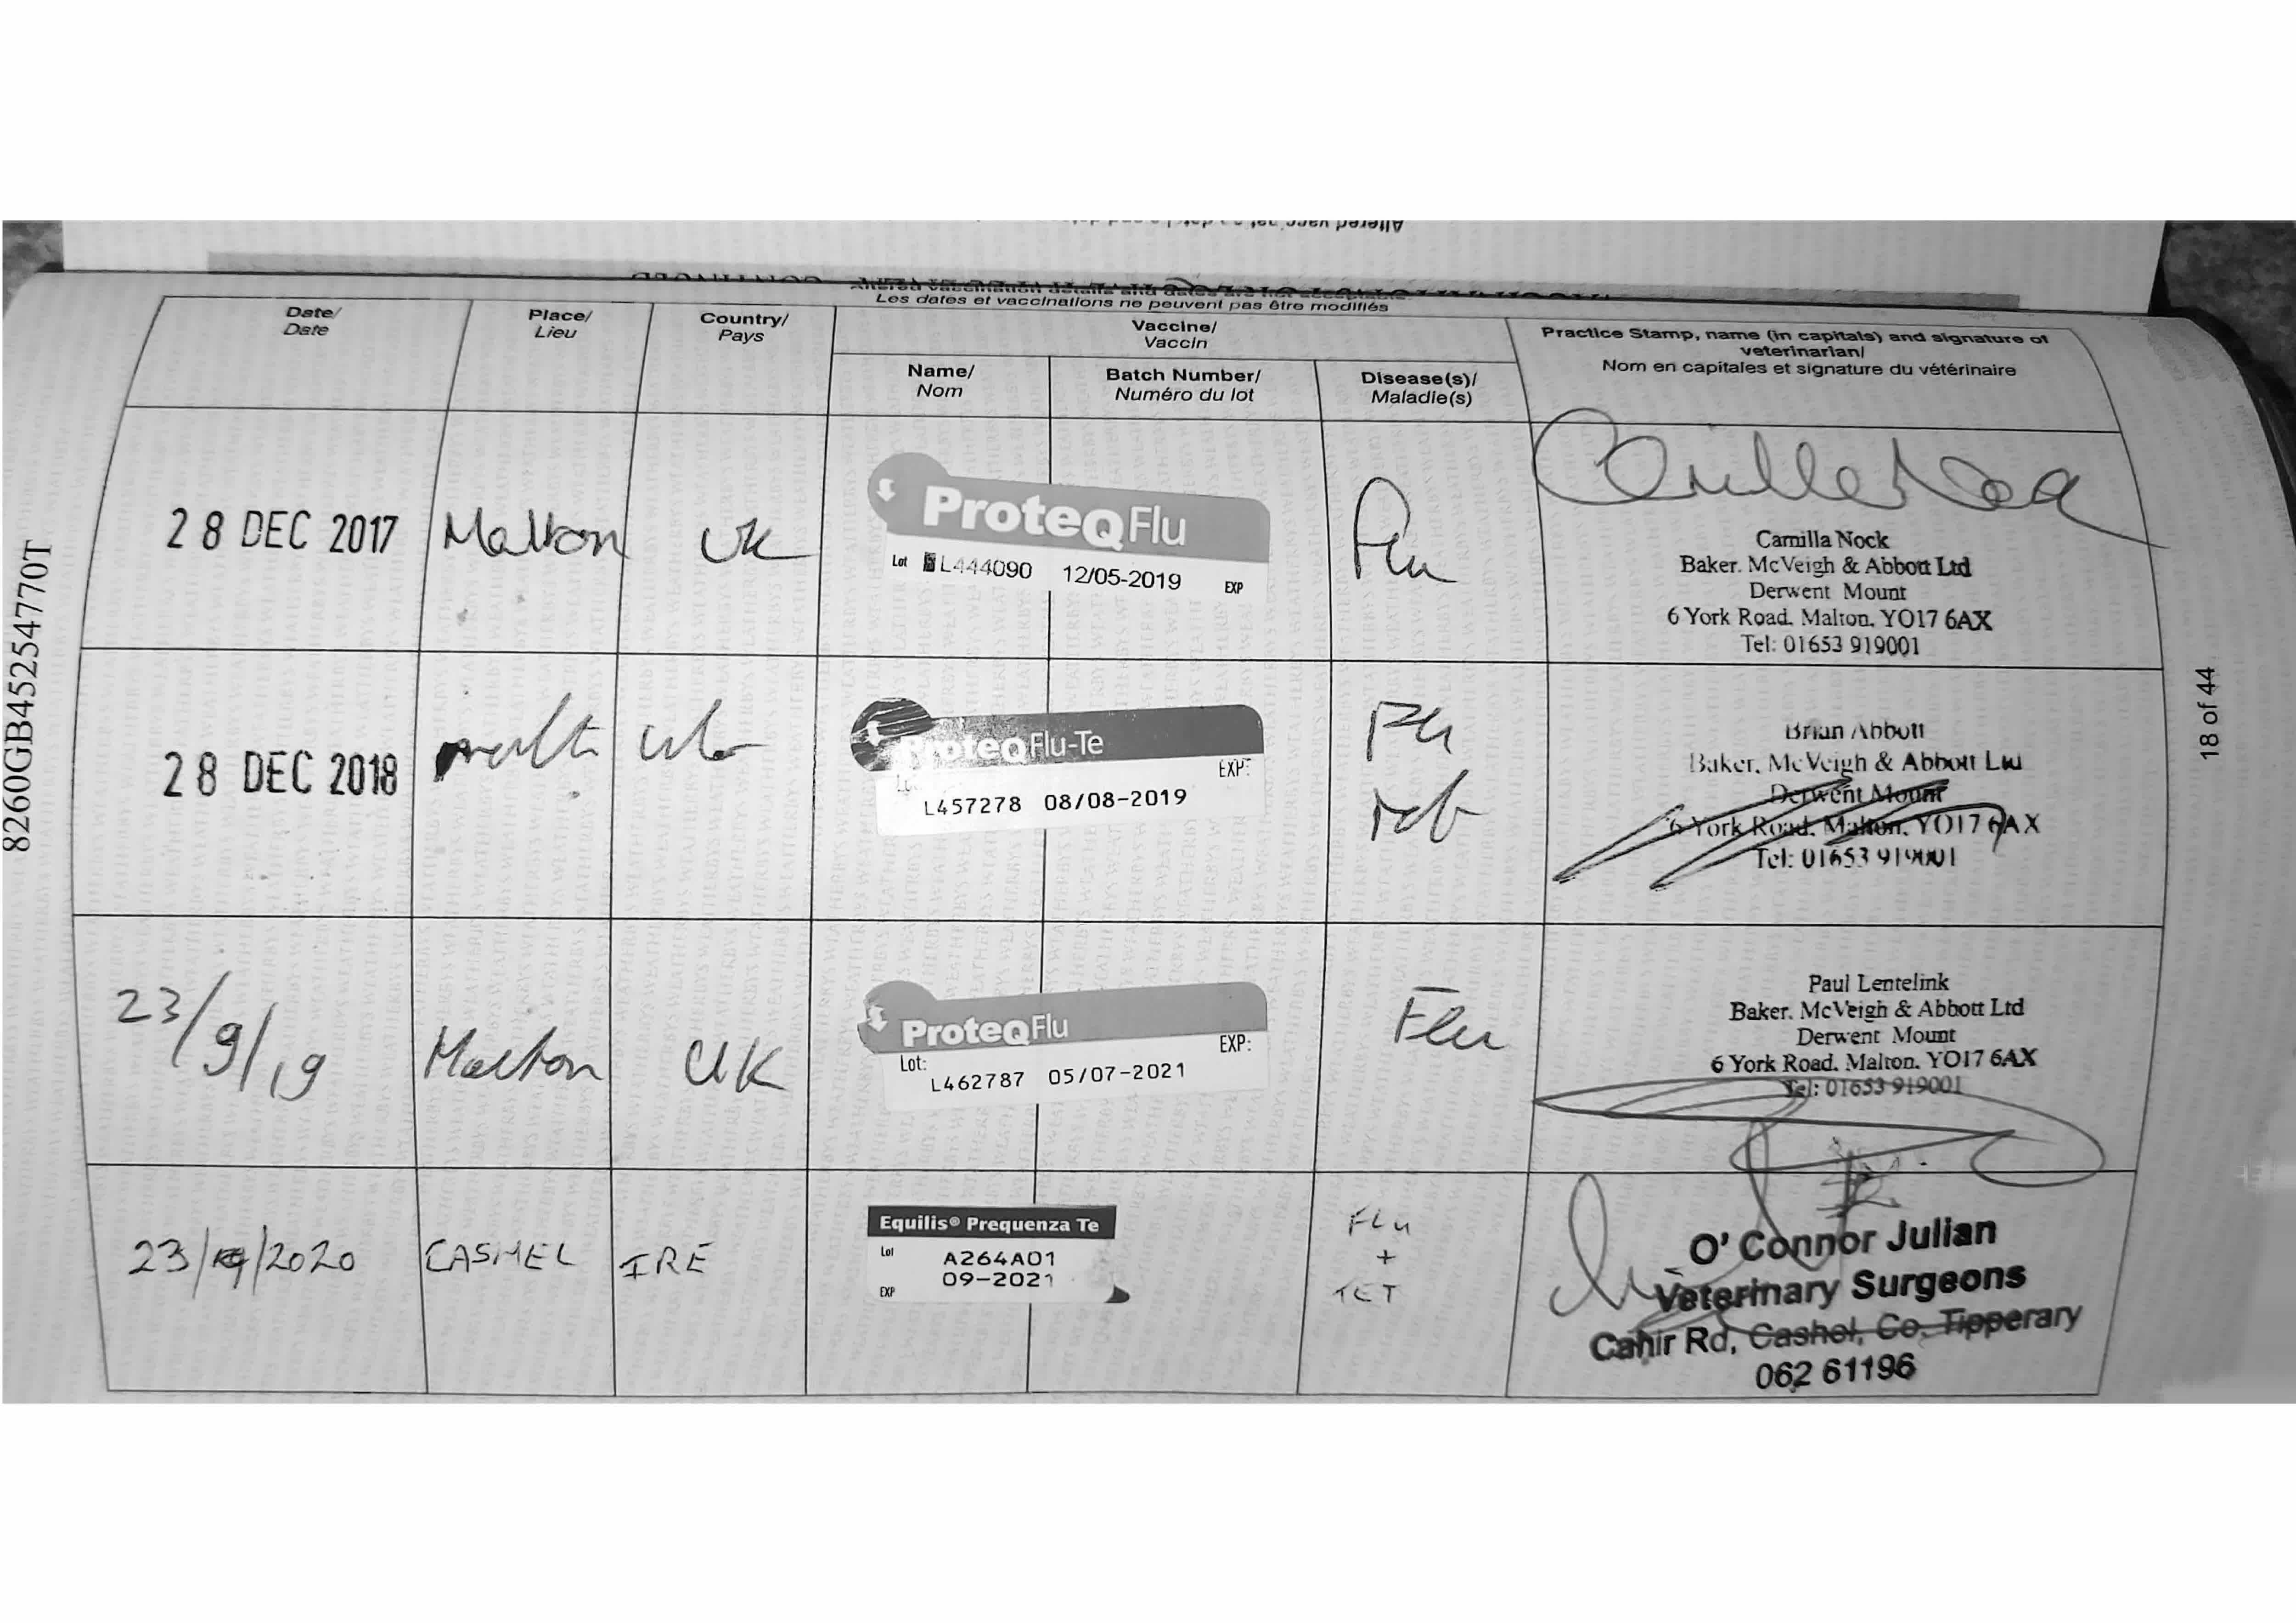 Les dates et vaccinations ne peuvent pas être modifiés
Date/
Date
Place/
Lieu
Country/
Pays
Vaccine/
Vaccin
Name/
Nom
Batch Number/
Numéro du lot
Disease(s)/
Maladie(s)
Practice Stamp, name (in capitals) and signature of
veterinarian/
Nom en capitales et signature du vétérinaire
28 DEC 2017
Malton
UK
ProteqFlu
Lot L444090 12/05-2019 EXP
Flu
Camilla Nock
Baker, McVeigh & Abbott Ltd
Derwent Mount
6 York Road, Malton, YO17 6AX
Tel: 01653 919001
28 DEC 2018
ProteqFlu-Te
EXP:
L457278 08/08-2019
Brian Abbott
Baker, McVeigh & Abbott Ltd
Derwent Mount
6 York Road, Malton, YO17 6AX
Tel: 01653 919001
23/9/19
Malton
UK
ProteqFlu
Lot: EXP:
L462787 05/07-2021
Flu
Paul Lentelink
Baker, McVeigh & Abbott Ltd
Derwent Mount
6 York Road, Malton, YO17 6AX
Tel: 01653 919001
23/ /2020
CASHEL
IRE
Equilis® Prequenza Te
Lot A264A01
09-2021
EXP
FLu
+
TET
O' Connor Julian
Veterinary Surgeons
Cahir Rd, Cashel, Co. Tipperary
062 61196
8260GB45254770T
18 of 44